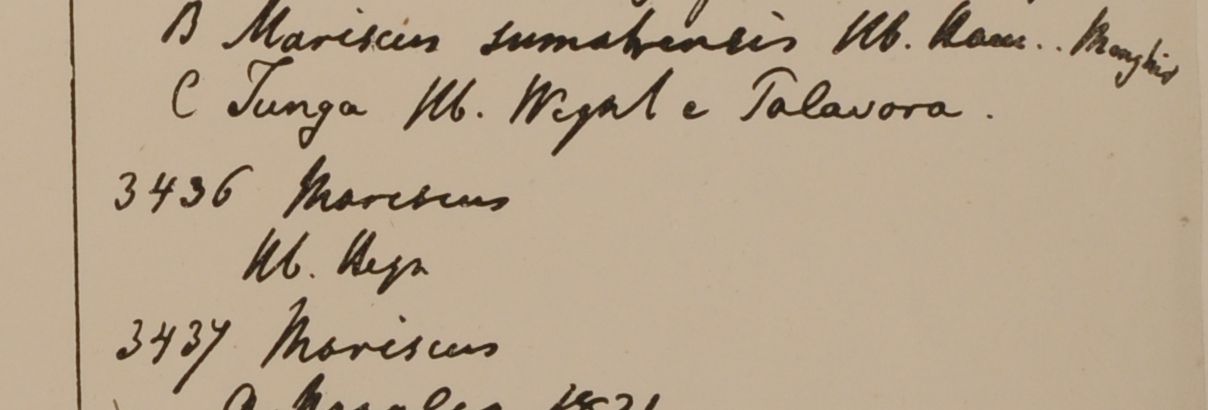 B Mariscus sumatrensis Hb. Ham.. Monghir
C Tunga Hb. Wight e Talavora.
3436 Mariscus
Hb. Heyn
3437 Mariscus
a. 1821